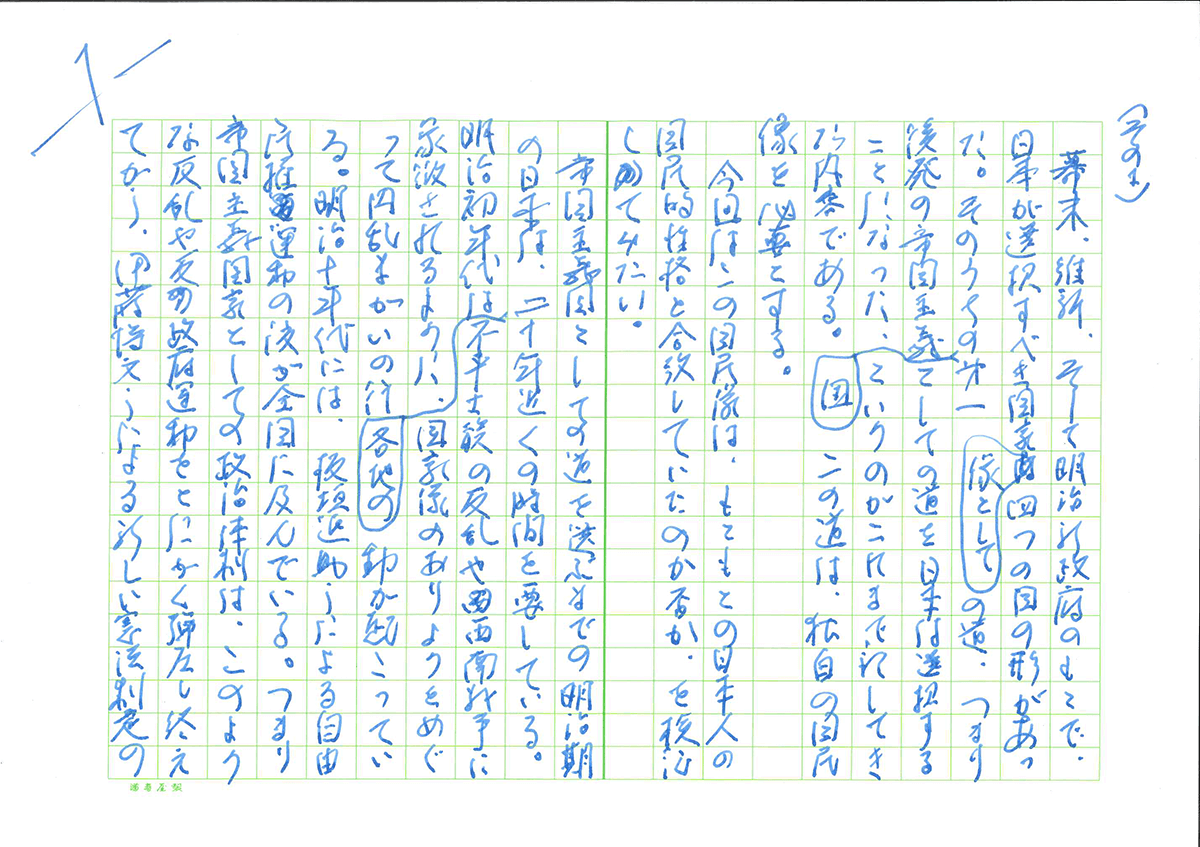 (その1)
幕末、維新、そして明治新政府のもとで、
日本が選択すべき国家像として四つの国の形があっ
た。そのうちの第一の道、つまり
後発の帝国主義国としての道を日本は選択する
ことになった、というのがこれまで記してき
た内容である。この道は、独自の国民
像を必要とする。
今回はこの国民像は、もともとの日本人の
国民的性格と合致していたのか否か、を検証
してみたい。
帝国主義国としての道を選ぶまでの明治期
の日本は、二十年近くの時間を要している。
明治初年代は各地の不平士族の反乱や西南戦争に
象徴されるように、国家像のありようをめぐ
って内乱まがいの行動が起こってい
る。明治十年代には、板垣退助らによる自由
民権運動の波が全国に及んでいる。つまり
帝国主義国家としての政治体制は、このよう
な反乱や反政府運動をとにかく弾圧し終え
てから、伊藤博文らによる新しい憲法制定の
満寿屋製